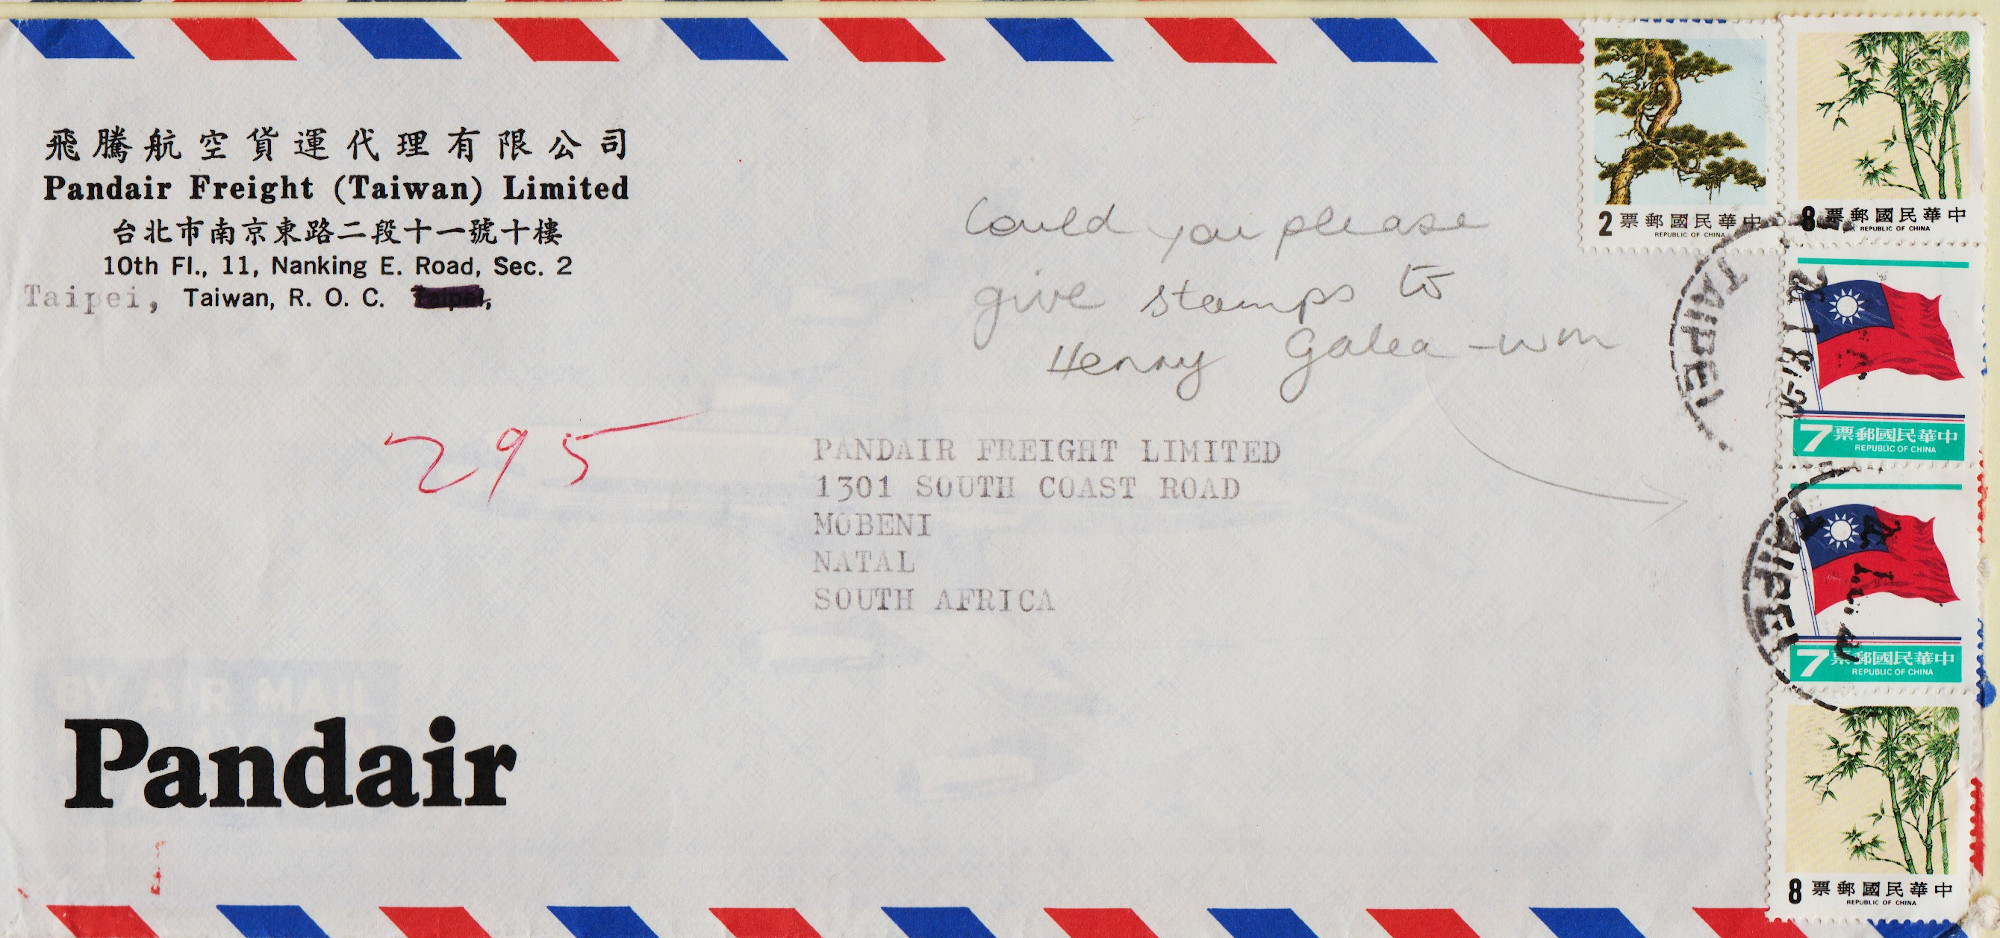 飛騰航空貨運代理有限公司
Pandair Freight (Taiwan) Limited
台北市南京東路二段十一號十樓
10th Fl., 11, Nanking E. Road, Sec. 2
Taipei, Taiwan, R. O. C. Taipei,
Could you please
give stamps to
Henny Galea - wm
295
PANDAIR FREIGHT LIMITED
1301 SOUTH COAST ROAD
MOBENI
NATAL
SOUTH AFRICA
BY AIR MAIL
Pandair
2 票郵國民華中
REPUBLIC OF CHINA
8 票郵國民華中
REPUBLIC OF CHINA
TAIPEI
7 票郵國民華中
REPUBLIC OF CHINA
TAIPEI
7 票郵國民華中
REPUBLIC OF CHINA
8 票郵國民華中
REPUBLIC OF CHINA